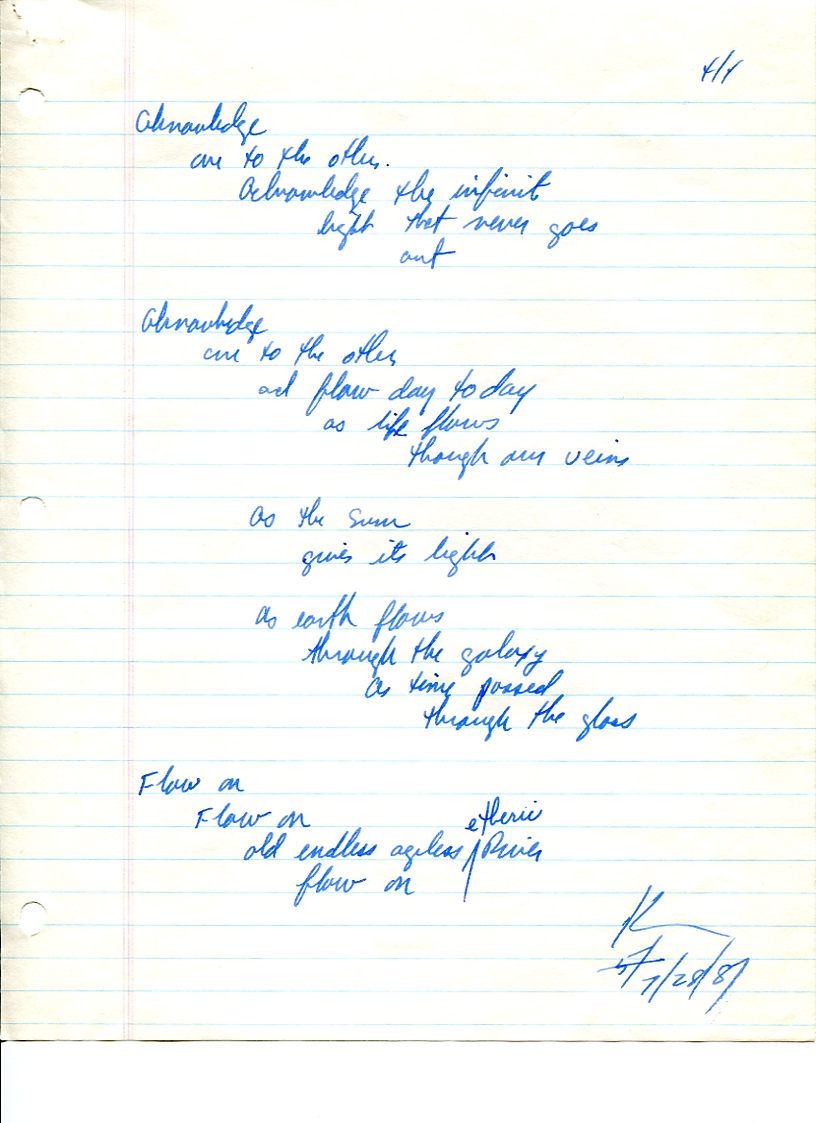 4/4
Acknowledge
one to the other.
Acknowledge the infinit
light that never goes
out
Acknowledge
one to the other
and flow day to day
as life flows
through our veins
as the sun
gives its light
as earth flows
through the galaxy
as time passed
through the glass
Flow on
Flow on
etheric
old endless ageless River
flow on
K
7/28/81